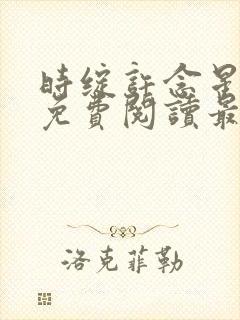 时绽許念星
免費閱讀最
洛克菲勒